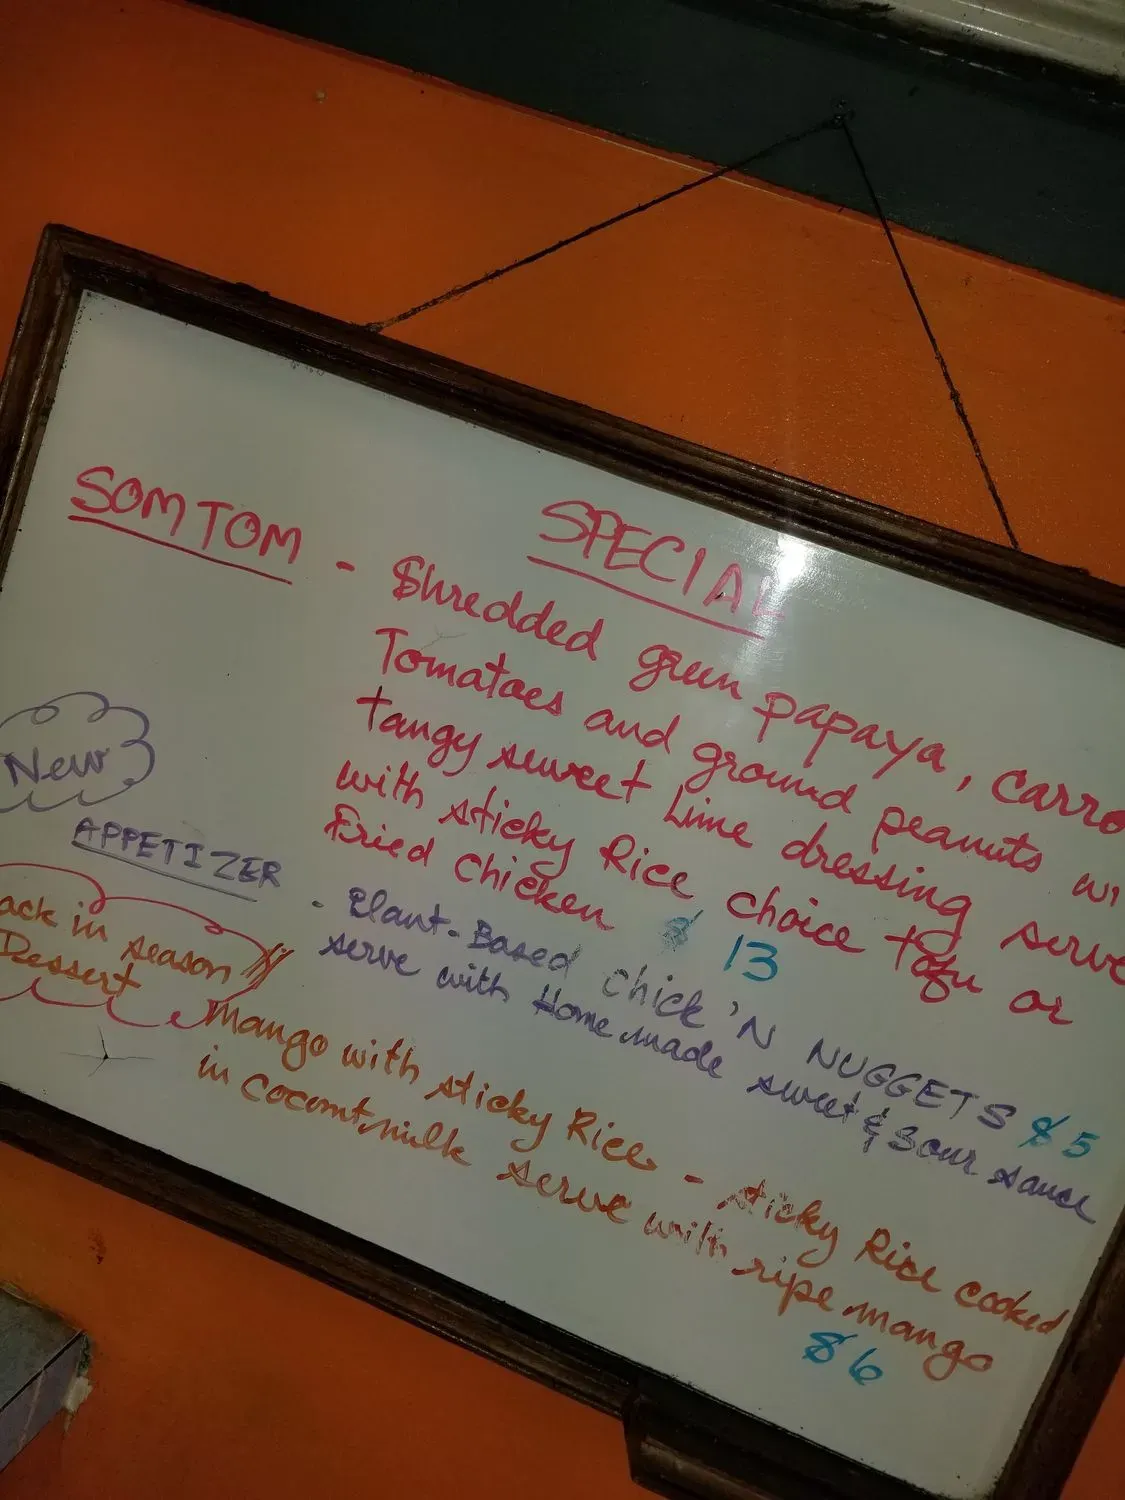 SPECIAL
SOM TOM - Shredded green papaya, carro
Tomatoes and ground peanuts wi
tangy sweet Lime dressing serve
with sticky Rice choice tofu or
Fried Chicken $13
New
APPETIZER - Plant-Based chick'N NUGGETS $5
serve with Homemade sweet & Sour sauce
ack in season
Dessert
Mango with sticky Rice - sticky Rice cooked
in coconut milk serve with ripe mango
$6